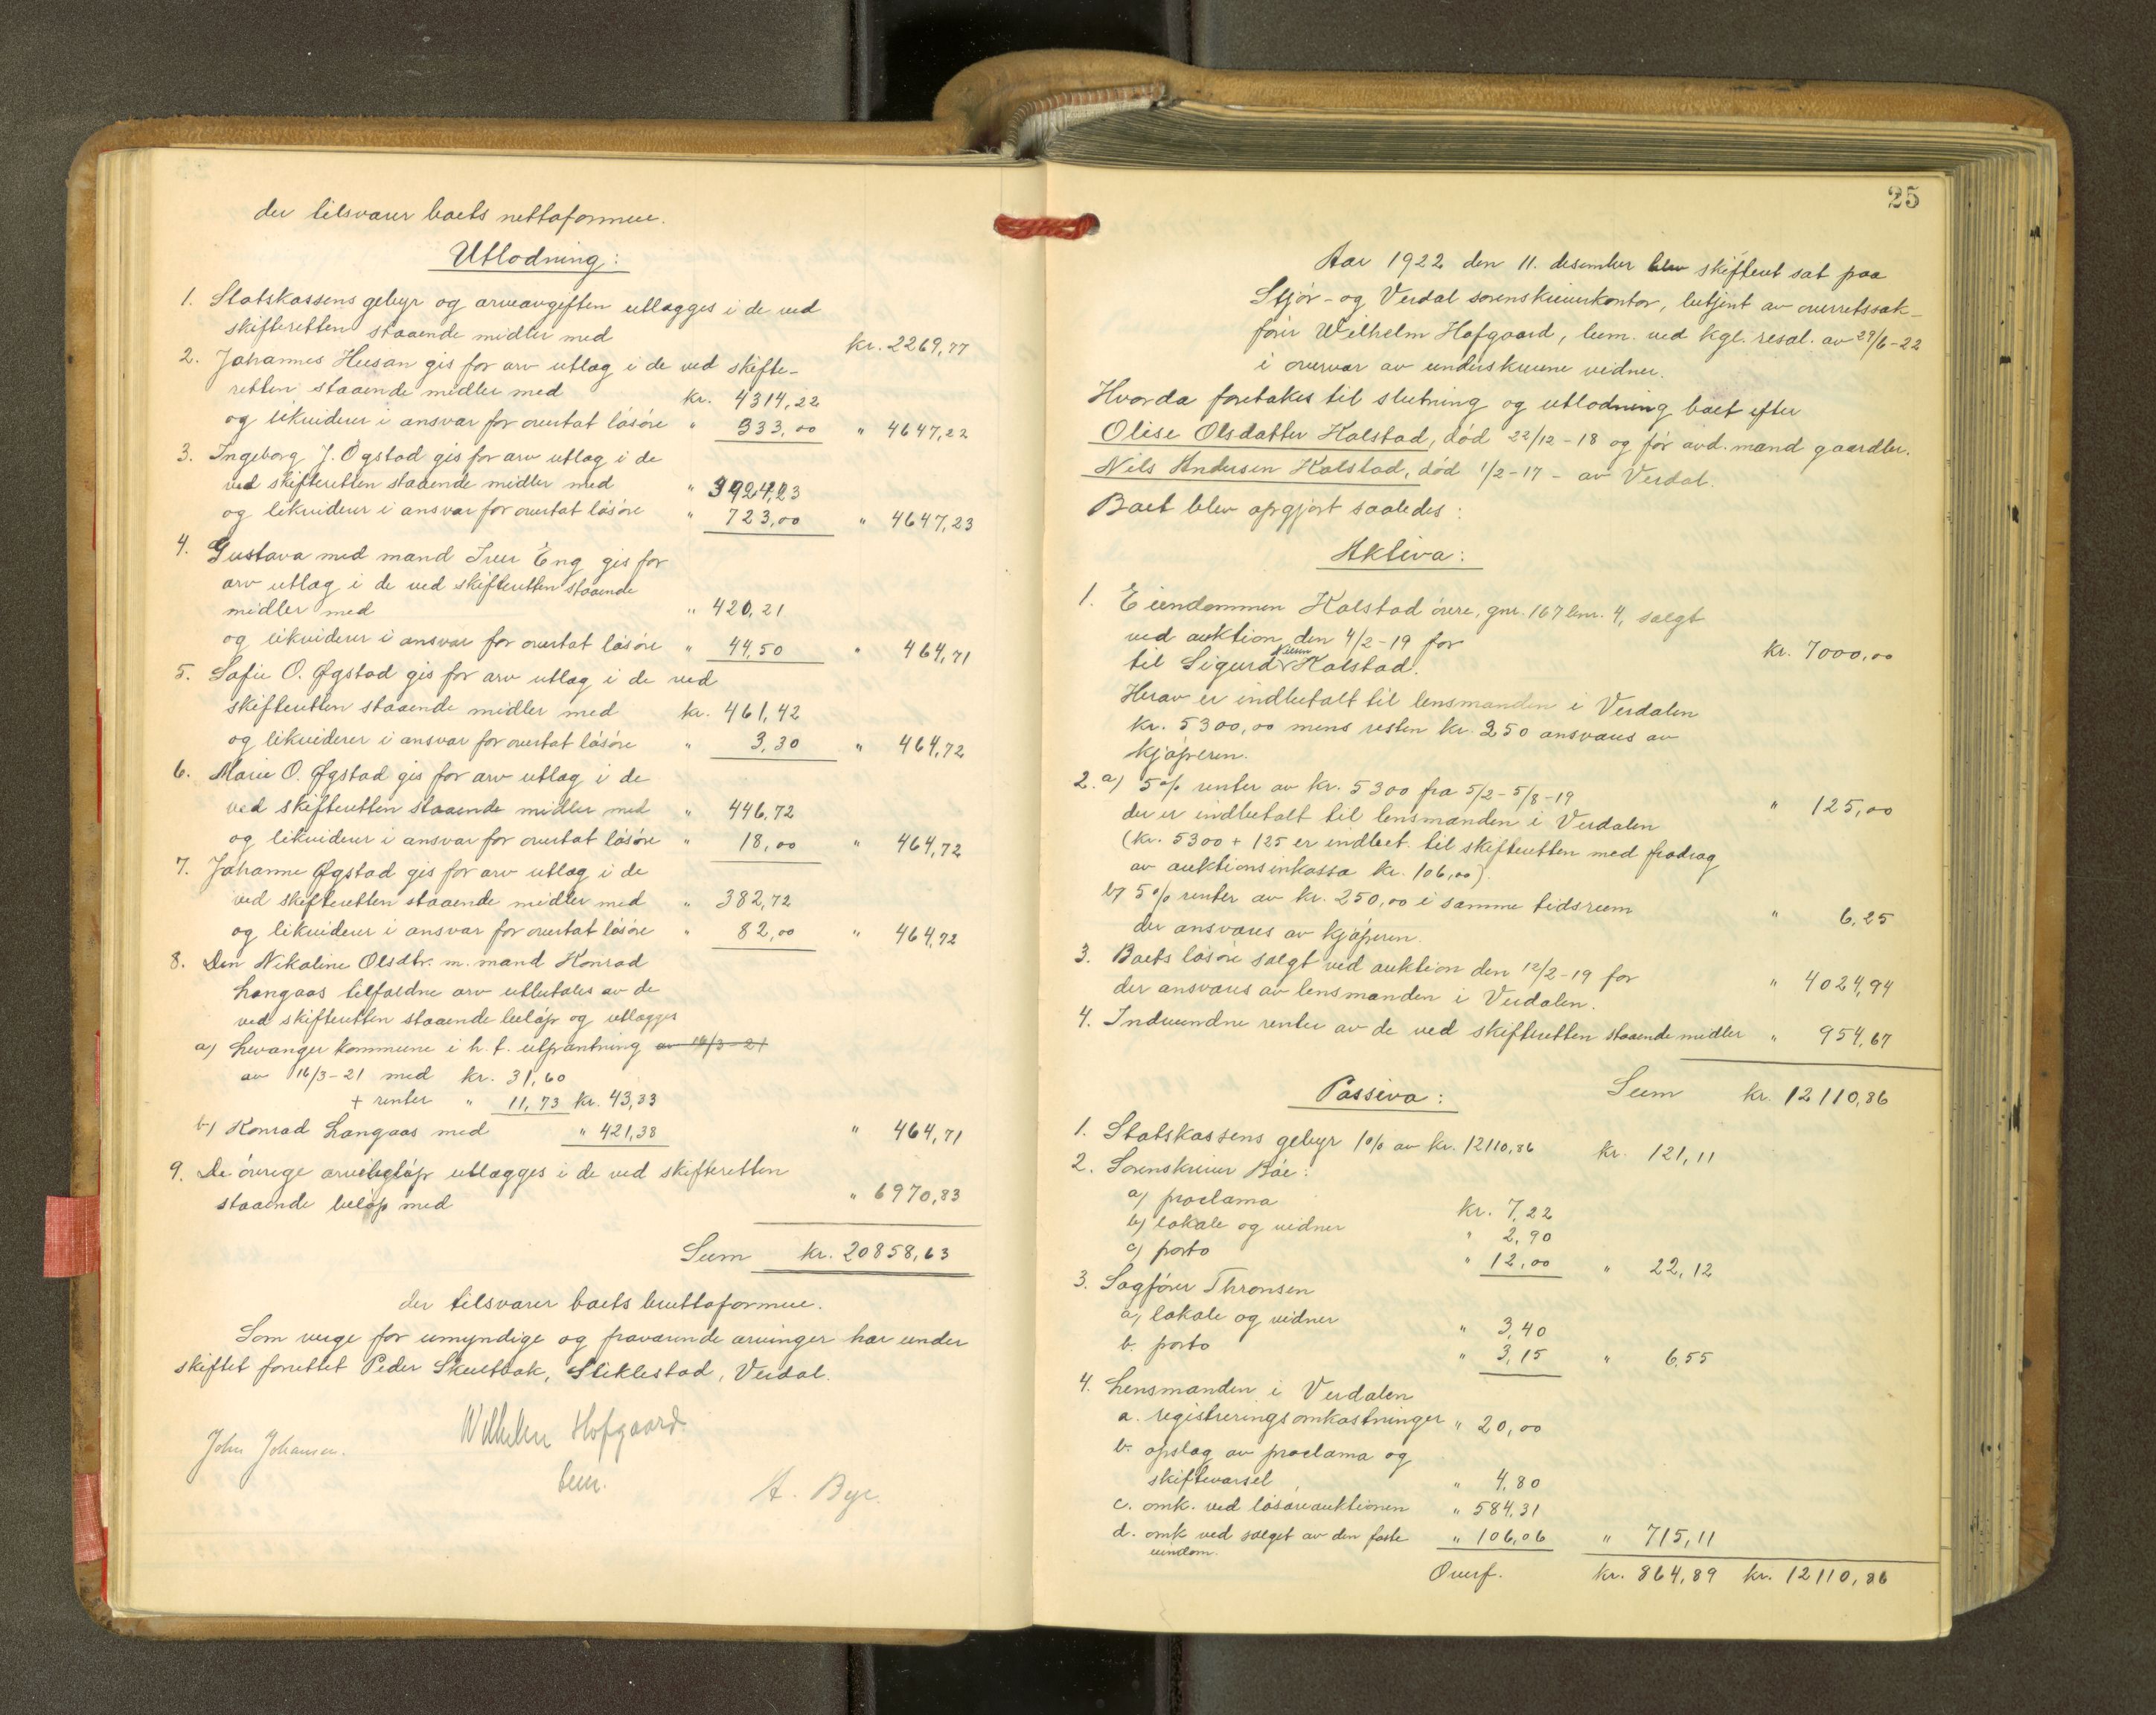 der tilsvarer boets nettoformue.
Utlodning:
1. Statskassens gebyr og arveavgiften utlægges i de ved
skifteretten staaende midler med kr. 2269,77
2. Johannes Husan gis for arv utlæg i de ved skifte-
retten staaende midler med kr. 4314,22
og likviderer i ansvar for overtat løsøre " 333,00 " 4647,22
3. Ingeborg J. Øgstad gis for arv utlæg i de
ved skifteretten staaende midler med " 3924,23
og likviderer i ansvar for overtat løsøre " 723,00 " 4647,23
4. Gustava med mand Iver Eng gis for
arv utlæg i de ved skifteretten staaende
midler med " 420,21
og likviderer i ansvar for overtat løsøre " 44,50 " 464,71
5. Sofie O. Øgstad gis for arv utlæg i de ved
skifteretten staaende midler med kr. 461,42
og likviderer i ansvar for overtat løsøre " 3,30 " 464,72
6. Marie O. Øgstad gis for arv utlæg i de
ved skifteretten staaende midler med " 446,72
og likviderer i ansvar for overtat løsøre " 18,00 " 464,72
7. Johanne Øgstad gis for arv utlæg i de
ved skifteretten staaende midler med " 382,72
og likviderer i ansvar for overtat løsøre " 82,00 " 464,72
8. Den Nikoline Olsdtr. m. mand Konrad
Langaas tilfaldne arv utbetales av de
ved skifteretten staaende beløp og utlægges
a) Levanger kommune i h. t. utpantning av 16/3-21
av 16/3-21 med kr. 31,60
+ renter " 11,73 kr. 43,33
b) Konrad Langaas med " 421,38 " 464,71
9. De øvrige arvebeløp utlægges i de ved skifteretten
staaende beløp med " 6970,83
Sum kr. 20858,63
der tilsvarer boets bruttoformue.
Som verge for umyndige og fraværende arvinger har under
skiftet forrettet Peder Skultbak, Stiklestad, Verdal.
Wilhelm Hofgaard
John Johansen.
bem.
A. Bye.
25
Aar 1922 den 11. desember blev skifteret sat paa
Stjør- og Verdal sorenskriverkontor, betjent av overretssak-
fører Wilhelm Hofgaard, bem. ved kgl. resol. av 29/6-22
i overvær av underskrevne vidner.
Hvorda foretakes til slutning og utlodning boet efter
Olise Olsdatter Kalstad, død 22/12-18 og før avd. mand gaardbr.
Nils Andersen Kalstad, død 1/2-17 - av Verdal.
Boet blev opgjort saaledes:
Aktiva:
1. Eiendommen Kalstad øvre, gnr. 167 bnr. 4, solgt
ved auktion den 4/2-19 for kr. 7000,00
til Sigurd Kalstad.
Herav er indbetalt til lensmanden i Verdalen
kr. 5300,00 mens resten kr. 250 ansvares av
kjøperen.
2. a) 5% renter av kr. 5300 fra 5/2-5/8-19 " 125,00
der er indbetalt til lensmanden i Verdalen
(kr. 5300 + 125 er indbet. til skifteretten med fradrag
av auktionsinkasso kr. 106,00).
b) 5% renter av kr. 250,00 i samme tidsrum " 6,25
der ansvares av kjøperen.
3. Boets løsøre solgt ved auktion den 12/2-19 for " 4024,94
der ansvares av lensmanden i Verdalen.
4. Indvundne renter av de ved skifteretten staaende midler " 954,67
Sum kr. 12110,86
Passiva:
1. Statskassens gebyr 1% av kr. 12110,86 kr. 121,11
2. Sorenskriver Bøe:
a) proclama kr. 7,22
b) lokale og vidner " 2,90
c) porto " 12,00 " 22,12
3. Sagfører Thronsen
a) lokale og vidner " 3,40
b. porto " 3,15 " 6,55
4. Lensmanden i Verdalen
a. registreringsomkostninger " 20,00
b. opslag av proclama og
skiftevarsel " 4,80
c. omk. ved løsøreauktionen " 584,31
d. omk ved salget av den faste " 106,06 " 715,11
eiendom.
Overf. kr. 864,89 kr. 12110,86